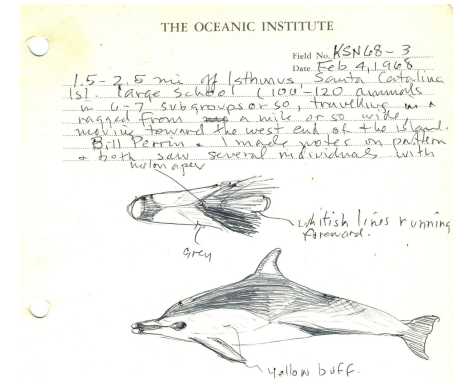 THE OCEANIC INSTITUTE
Field No. KSN68-3
Date Feb 4, 1968
1.5-2.5 mi off Isthmus, Santa Catalina
Isl. large school (100-120 animals
in 6-7 subgroups or so, travelling in a
ragged front a mile or so wide
moving toward the west end of the island.
Bill Perrin & I made notes on pattern
& both saw several individuals with
melon apex
whitish lines running
foreward.
Grey
yellow buff.